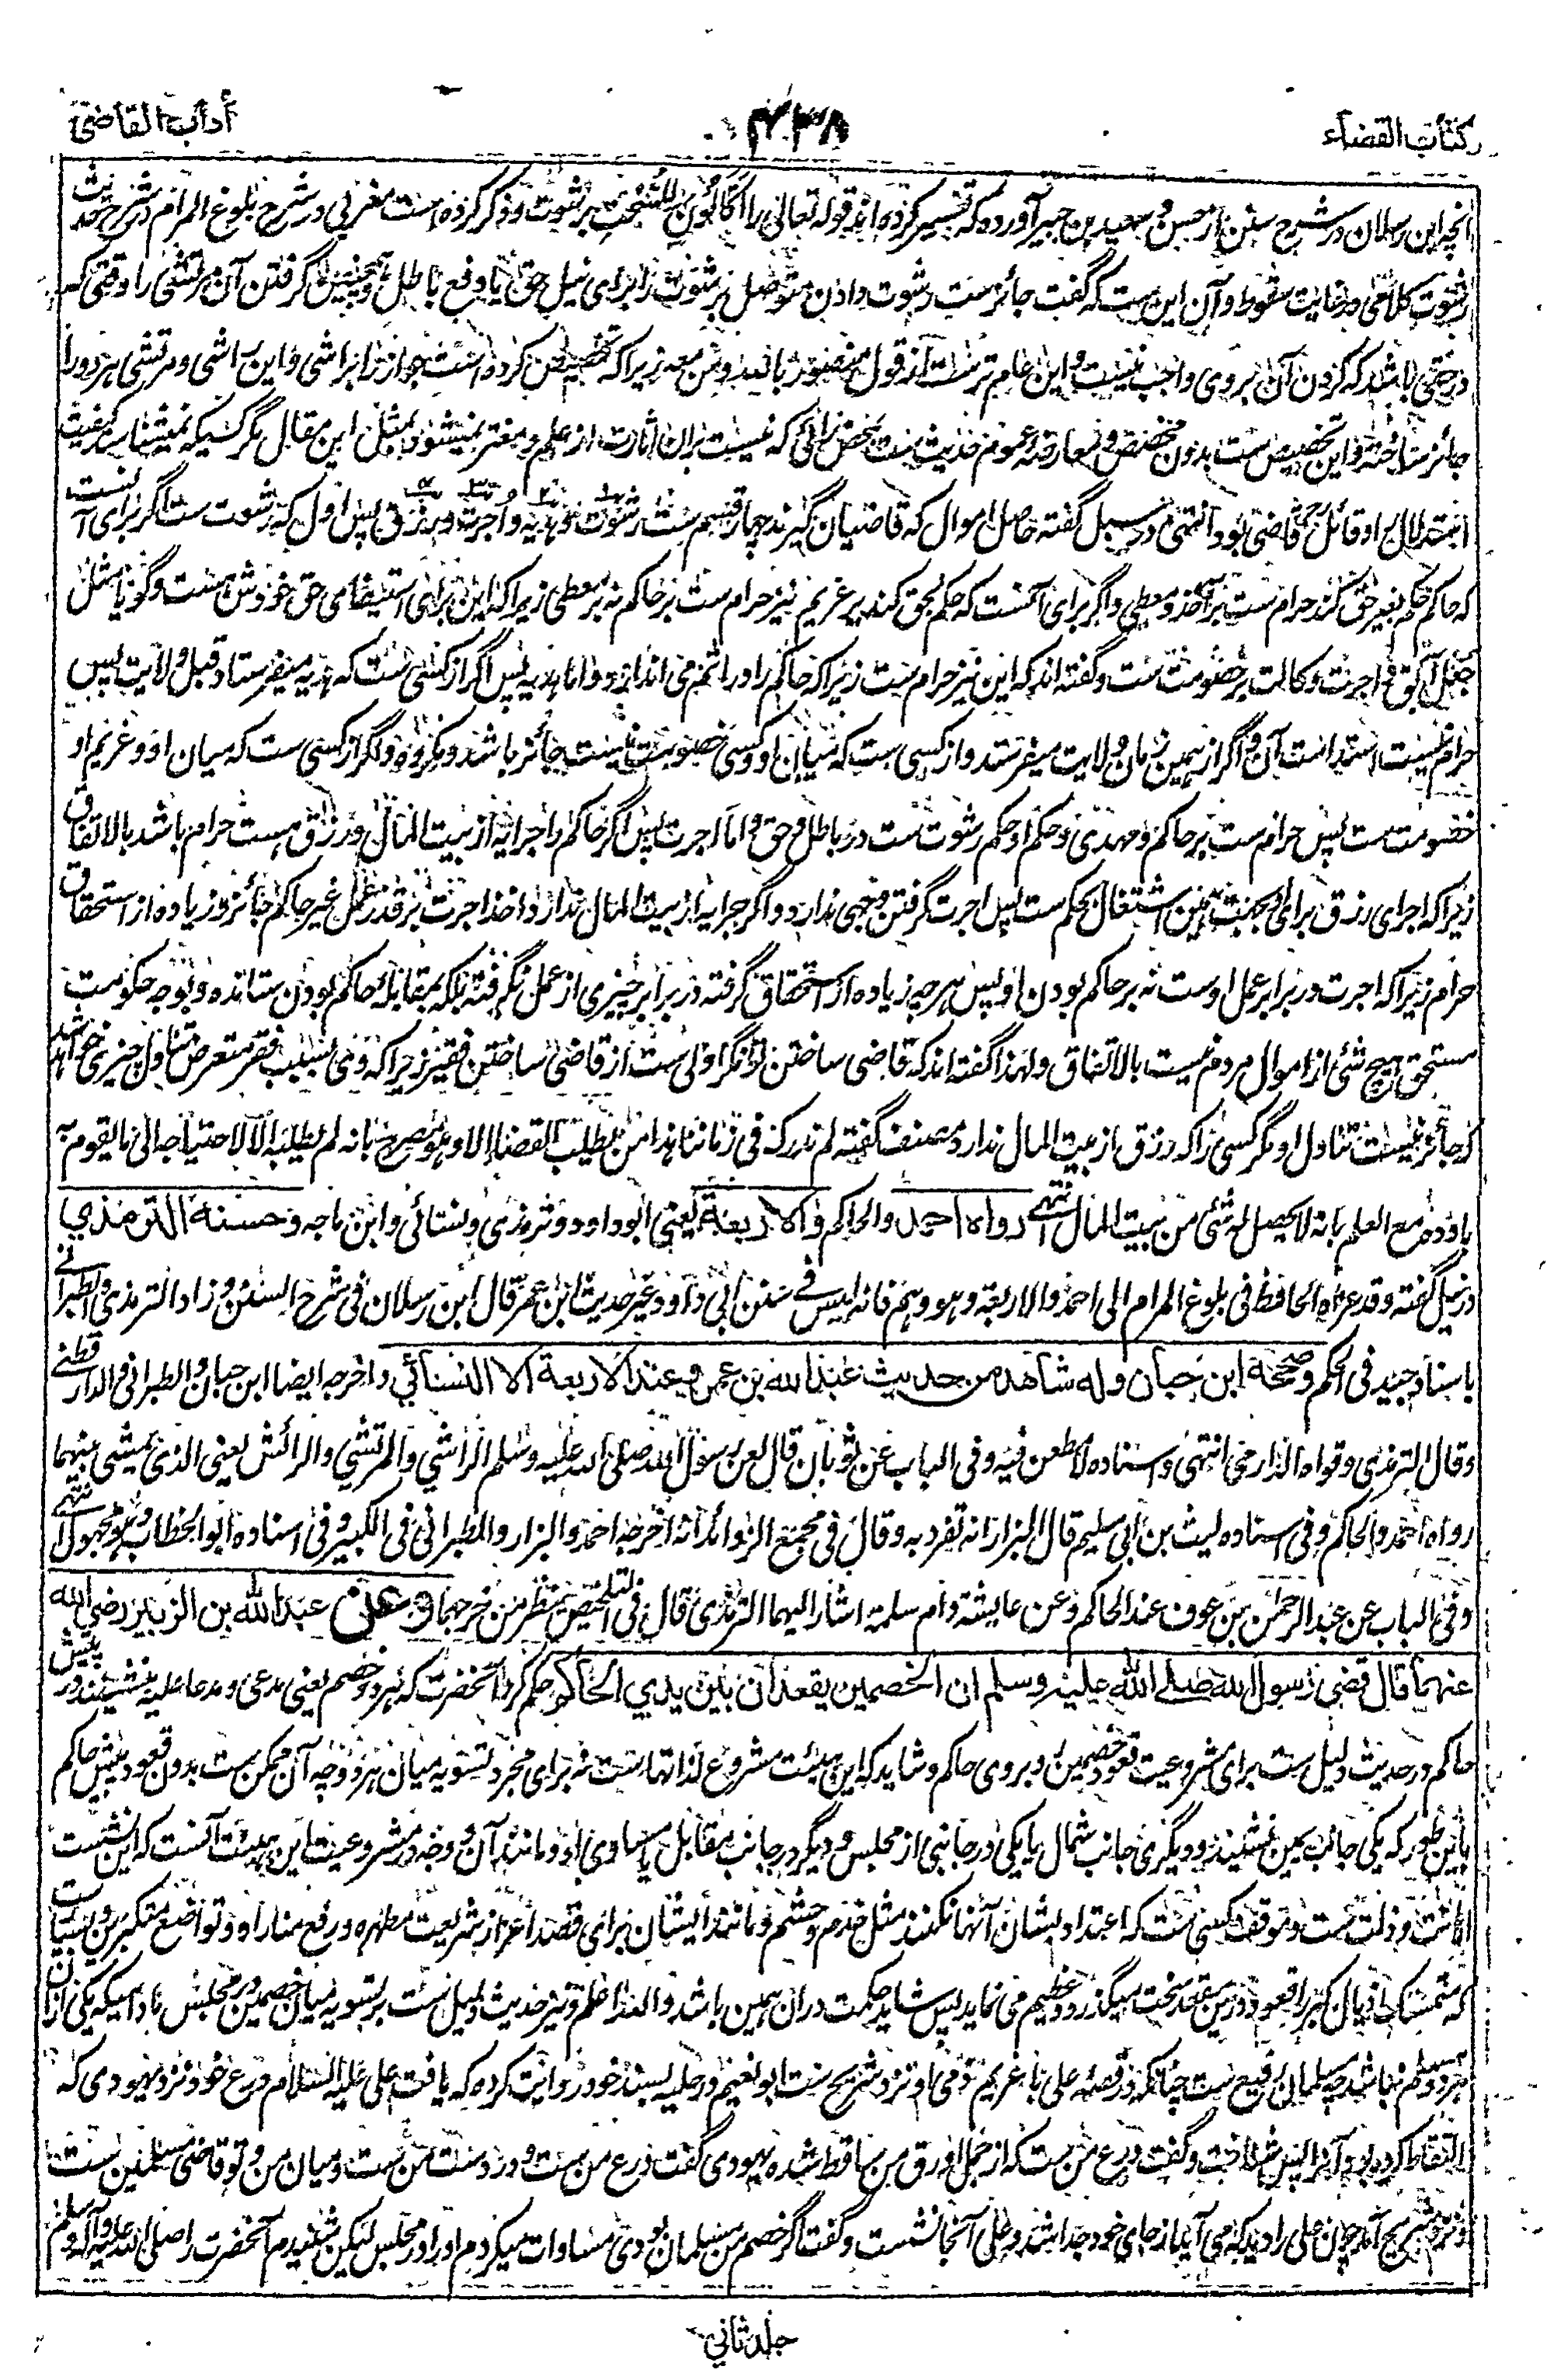 کتاب القضاء
۴۳۸
أداب القاضي
انچه ابن رسلان در شرح سنن از حسن و سعید بن جبیر آورده که تفسیر کرده اند قوله تعالی را اکالون للسحت برشوت و ذکر کرده است مغربی در شرح بلوغ المرام در شرح حدیث
رشوت کلامی در غایت سقوط و آن این ست که گفت جائز ست رشوت دادن متوصل برشوت را برای نیل حق یا دفع باطل و همچنین گرفتن آن مرتشی را وقتی که
در حقی باشد که کردن آن بروی واجب نیست و این عام تر ست از قول منصور بالله و من معه زیرا که تخصیص کرده است جواز را براشی و این راشی و مرتشی هر دو را
جائز ساخته و این تخصیص ست بدون مخصص و معارضه عموم حدیث ست بمحض رائی که نیست بران اثارت از علم و مغتر نمیشود بمثل این مقال مگر کسیکه نمیشناسد کیفیت
استدلال را و قائل قاضی بود انتهی در سبل گفته حاصل اموال که قاضیان گیرند چهار قسم ست رشوت و هدیه و اجرت و رزق پس اول که رشوت ست اگر برای آنست
که حاکم حکم بغیر حق کند حرام ست بر آخذ و معطی و اگر برای آنست که حکم بحق کند بر غریم نیز حرام ست بر حاکم نه بر معطی زیرا که این برای استیفای حق خودش ست و گویا مثل
جعل آبق و اجرت وکالت بر خصومت ست و گفته اند که این نیز حرام ست زیرا که حاکم را در اثم می اندازد و اما هدیه پس اگر از کسی ست که هدیه میفرستاد قبل ولایت پس
حرام نیست استدامت آن و اگر از همین زمان ولایت میفرستد و از کسی ست که میان او و کسی خصومت نیست جائز باشد و مکروه و اگر از کسی ست که میان او و غریم او
خصومت ست پس حرام ست بر حاکم و مهدی و حکم او حکم رشوت ست در باطل و حق و اما اجرت پس اگر حاکم را جرایه از بیت المال و رزق هست حرام باشد بالاتفاق
زیرا که اجرای رزق برای بجهت همین اشتغال بحکم ست پس اجرت گرفتن وجهی ندارد و اگر جرایه از بیت المال ندارد اخذ اجرت بر قدر عمل غیر حاکم جائز و زیاده از استحقاق
حرام زیرا که اجرت در برابر عمل اوست نه بر حاکم بودن او پس هر چه زیاده از استحقاق گرفته در برابر چیزی از عمل نگرفته بلکه بمقابله حاکم بودن ستانده و بوجه حکومت
مستحق هیچ شئی از اموال مردم نیست بالاتفاق ولهذا گفته اند که قاضی ساختن توانگر اولی ست از قاضی ساختن فقیر زیرا که وی بسبب فقر متعرض تناول چیزی خواهد شد
که جائز نیست تناول او مگر کسی را که رزق از بیت المال ندارد مصنف گفته لم ندرک فی زماننا هذا من یطلب القضاء الا و هو مصرح بانه لم یطلبه الا لاحتیاجه الی ما یقوم به
باوده مع العلم بانه لا یحصل له شئی من بیت المال انتهی رواه احمد والحاکم والاربعة یعنی ابو داود و ترمذی و نسائی و ابن ماجه وحسنه الترمذي
در نیل گفته و قد عزاه الحافظ فی بلوغ المرام الی احمد والاربعة و هو وهم فانه لیس فی سنن ابی داود غیر حدیث ابن عمر قال ابن رسلان فی شرح السنن و زاد الترمذی والطبرانی
باسناد جید فی الحکم وصححه ابن حبان وله شاهد من حدیث عبد الله بن عمرو عند الاربعة الا النسائي و اخرجه ایضا ابن حبان والطبرانی والدارقطنی
و قال الترمذی و قواه الدارمی انتهی و اسناده لا مطعن فیه و فی الباب عن ثوبان قال لعن رسول الله صلی الله علیه و سلم الراشي والمرتشي والرائش یعنی الذی یمشی بینهما
رواه احمد والحاکم و فی اسناده لیث بن ابی سلیم قال البزار انه تفرد به و قال فی مجمع الزوائد انه اخرجه احمد والبزار والطبرانی فی الکبیر و فی اسناده ابو الخطاب و هو مجهول انتهی
و فی الباب عن عبد الرحمن بن عوف عند الحاکم و عن عایشه و ام سلمة اشار الیهما الترمذی قال فی التلخیص ینظر من خرجهما وعن عبد الله بن الزبیر رضي الله
عنهما قال قضی رسول الله صلی الله علیه وسلم ان الخصمین یقعدان بین یدي الحاکم حکم کرد آنحضرت که هر دو خصم یعنی مدعی و مدعا علیه بنشینند در پیش
حاکم و در حدیث دلیل ست برای مشروعیت قعود خصمین روبروی حاکم و شاید که این هیئت مشروع لذاتها ست نه برای مجرد تسویه میان هر دو و چه آن ممکن ست بدون قعود پیش حاکم
باین طور که یکی جانب یمین بنشیند و دیگری جانب شمال یا یکی در جانبی از مجلس و دیگر در جانب مقابل یا مساوی او و مانند آن و وجه در مشروعیت این هیئت آنست که این نشست
اهانت و ذلت ست و موقف کسی ست که اعتداد بشان آنها نکنند مثل خدم و حشم و مانند ایشان برای قصد اعزاز شریعت مطهره و رفع منار او و تواضع متکبرین و بسا ست
که متمسک باذیال کبر را قعود درین مقعد سخت میگذرد و عظیم می نماید پس شاید حکمت دران همین باشد والله اعلم و نیز حدیث دلیل ست بر تسویه میان خصمین در مجلس مادامیکه یکی ازان
هر دو مسلم نباشد چه مسلمان رفیع ست چنانکه در قصه علی با غریم ذمی او نزد شریح ست ابو نعیم در حلیه بسند خود روایت کرده که یافت علی علیه السلام درع خود نزد یهودی که
التقاط کرده بود آنرا پس شناخت و گفت درع من ست که از جمل اورق من ساقط شده یهودی گفت درع من ست و در دست من ست و میان من و تو قاضی مسلمین ست
و نزد شریح آمد چون علی را دید که می آید از جای خود جدا شد و علی آنجا نشست و گفت اگر خصم من مسلمان بودی مساوات میکردم او را در مجلس لیکن شنیدم آنحضرت را صلی الله علیه وآله وسلم
جلد ثاني